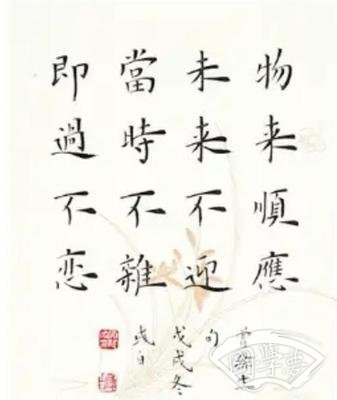 物来順應
未来不迎
當時不雜
即過不恋
句
戊戌冬